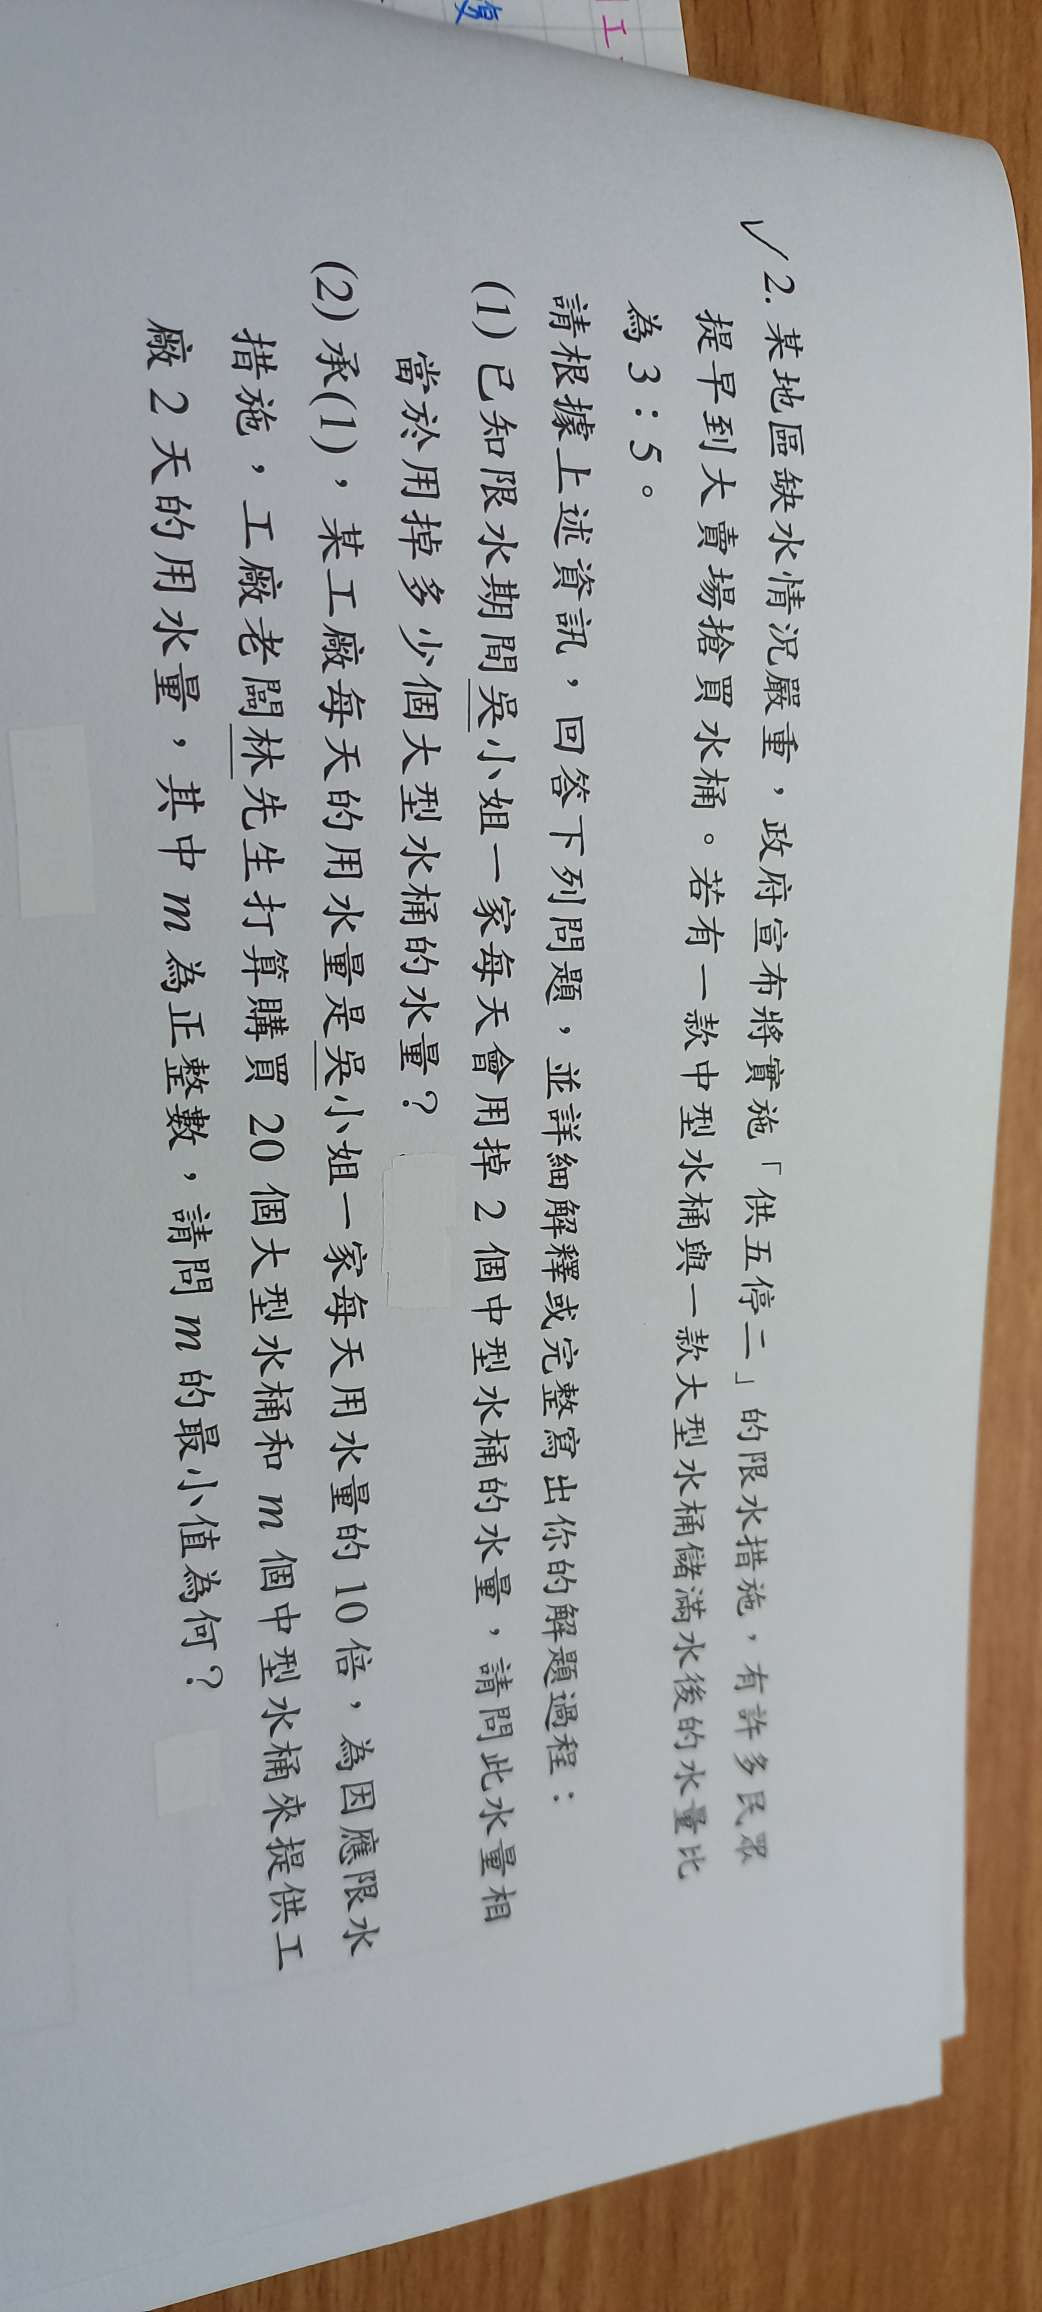 ✓2. 某地區缺水情況嚴重，政府宣布將實施「供五停二」的限水措施，有許多民眾
提早到大賣場搶買水桶。若有一款中型水桶與一款大型水桶儲滿水後的水量比
為 3：5。
請根據上述資訊，回答下列問題，並詳細解釋或完整寫出你的解題過程：
(1) 已知限水期間吳小姐一家每天會用掉 2 個中型水桶的水量，請問此水量相
當於用掉多少個大型水桶的水量？
(2) 承(1)，某工廠每天的用水量是吳小姐一家每天用水量的 10 倍，為因應限水
措施，工廠老闆林先生打算購買 20 個大型水桶和 m 個中型水桶來提供工
廠 2 天的用水量，其中 m 為正整數，請問 m 的最小值為何？
工